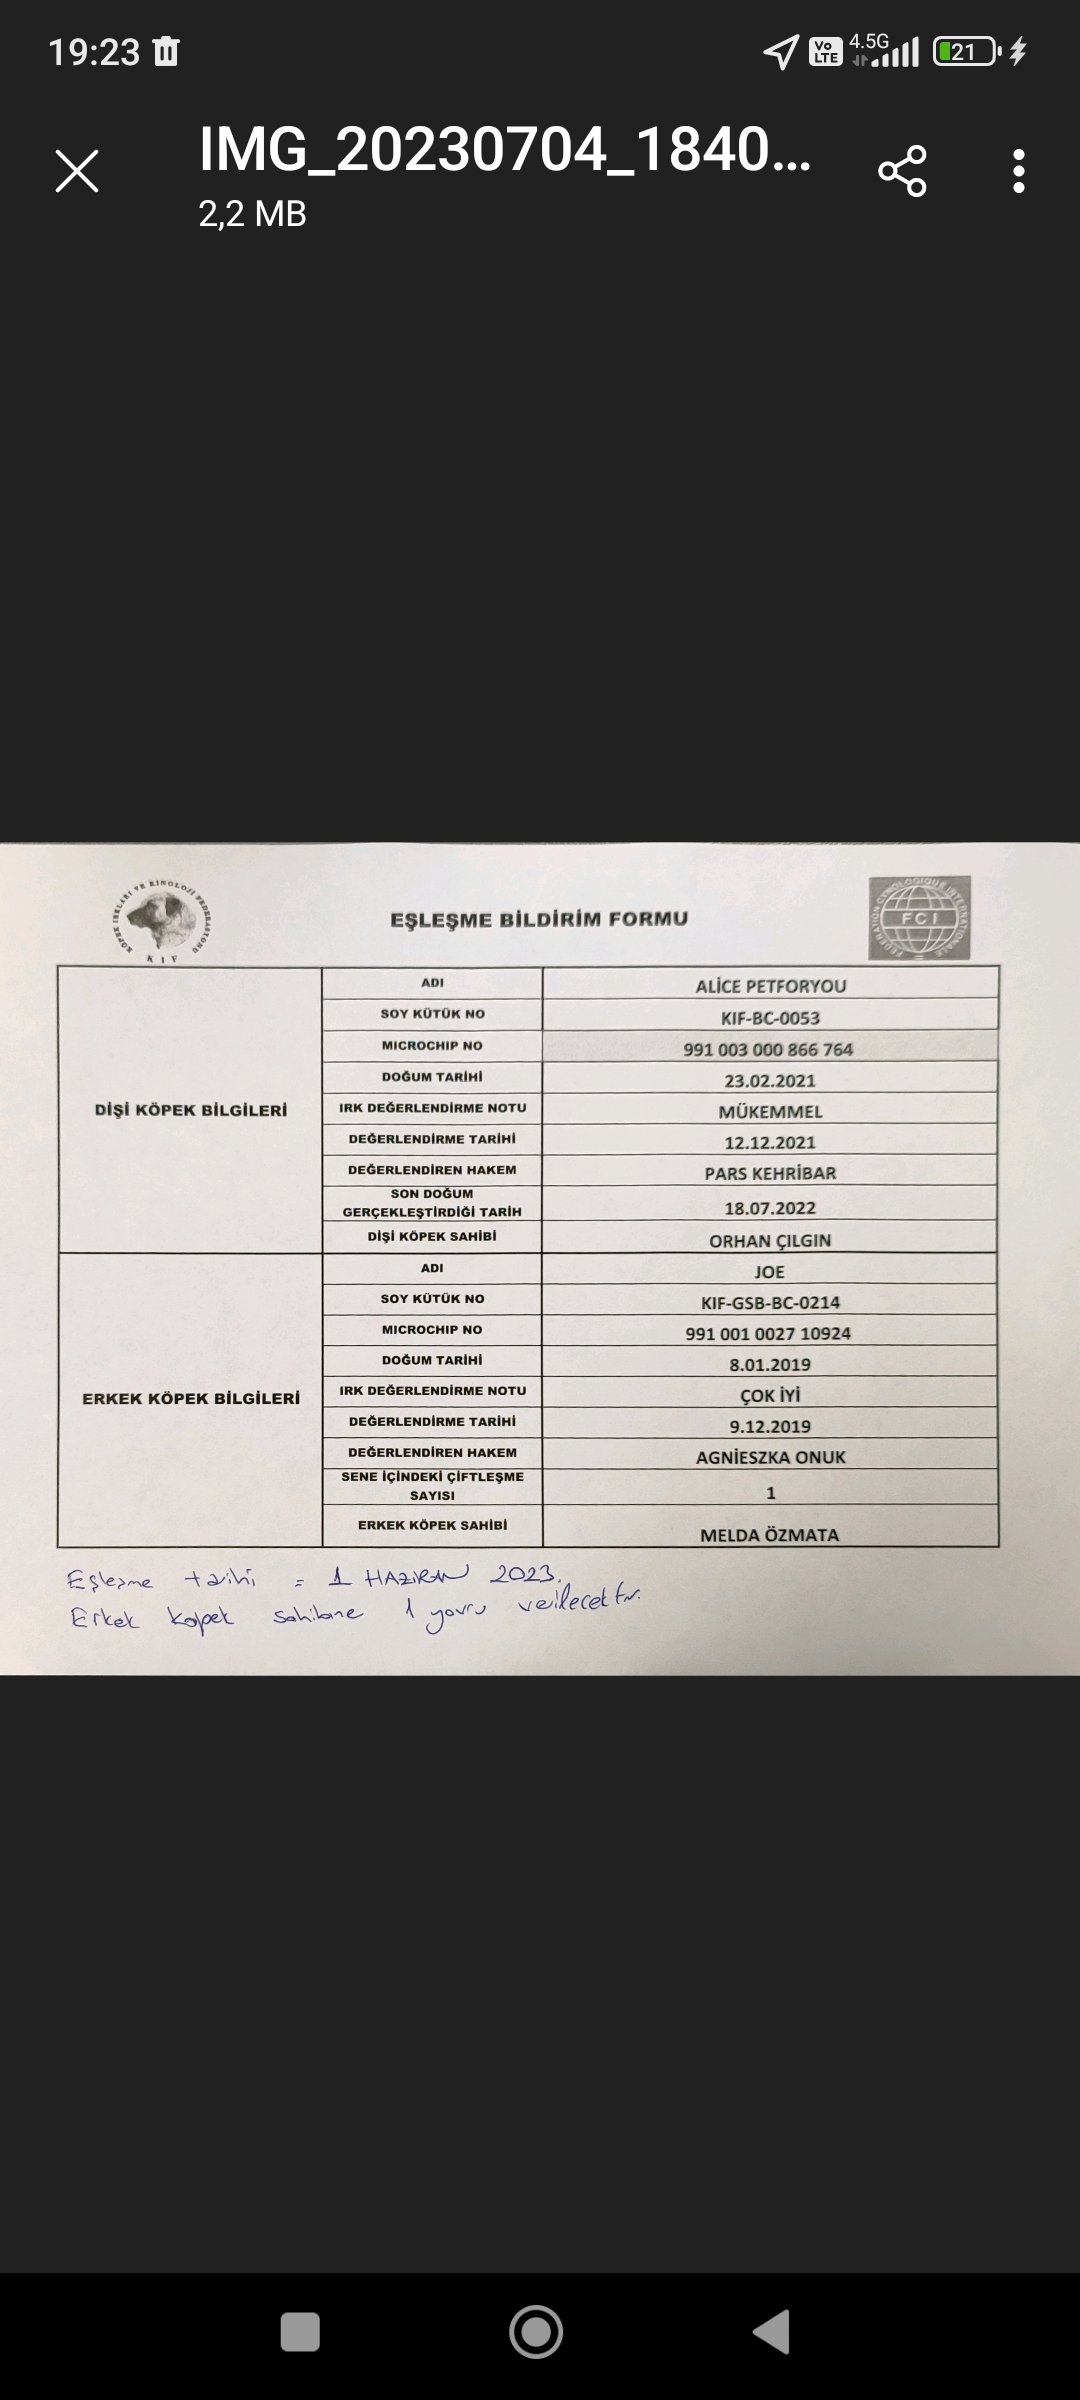 19:23
Vo LTE 4.5G 21
IMG_20230704_1840...
2,2 MB
KÖPEK IRKLARI VE KİNOLOJİ FEDERASYONU
KIF
EŞLEŞME BİLDİRİM FORMU
FEDERATION CYNOLOGIQUE INTERNATIONALE
FCI
DİŞİ KÖPEK BİLGİLERİ
ADI ALİCE PETFORYOU
SOY KÜTÜK NO KIF-BC-0053
MICROCHIP NO 991 003 000 866 764
DOĞUM TARİHİ 23.02.2021
IRK DEĞERLENDİRME NOTU MÜKEMMEL
DEĞERLENDİRME TARİHİ 12.12.2021
DEĞERLENDİREN HAKEM PARS KEHRİBAR
SON DOĞUM
GERÇEKLEŞTİRDİĞİ TARİH 18.07.2022
DİŞİ KÖPEK SAHİBİ ORHAN ÇILGIN
ERKEK KÖPEK BİLGİLERİ
ADI JOE
SOY KÜTÜK NO KIF-GSB-BC-0214
MICROCHIP NO 991 001 0027 10924
DOĞUM TARİHİ 8.01.2019
IRK DEĞERLENDİRME NOTU ÇOK İYİ
DEĞERLENDİRME TARİHİ 9.12.2019
DEĞERLENDİREN HAKEM AGNİESZKA ONUK
SENE İÇİNDEKİ ÇİFTLEŞME
SAYISI 1
ERKEK KÖPEK SAHİBİ MELDA ÖZMATA
Eşleşme tarihi = 1 HAZİRAN 2023.
Erkek köpek sahibine 1 yavru verilecektir.